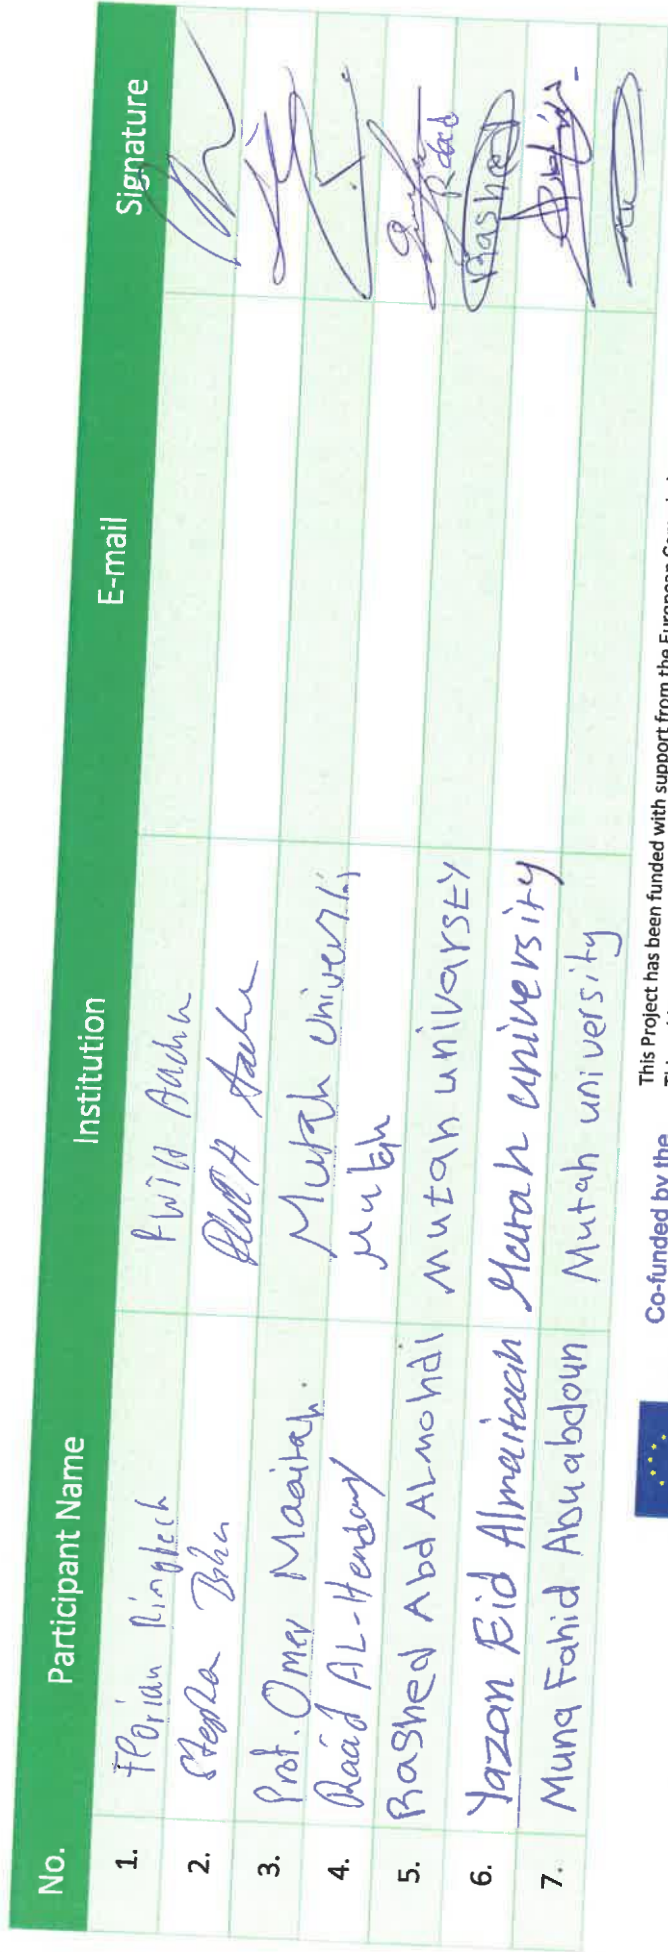 No. Participant Name Institution E-mail Signature
1. Florian Ringbeck RWTH Aachen
2. Stephan RWTH Aachen
3. Prof. Omer Maaitah. Mutah University
4. Raád AL-Hendawy Mutah Raad
5. Rashed Abd ALmohdi Mutah univarsty Rashed
6. Yazan Eid Almaitaah Mutah university
7. Muna Fahid Abuabdoun Mutah university
Co-funded by the
This Project has been funded with support from the European